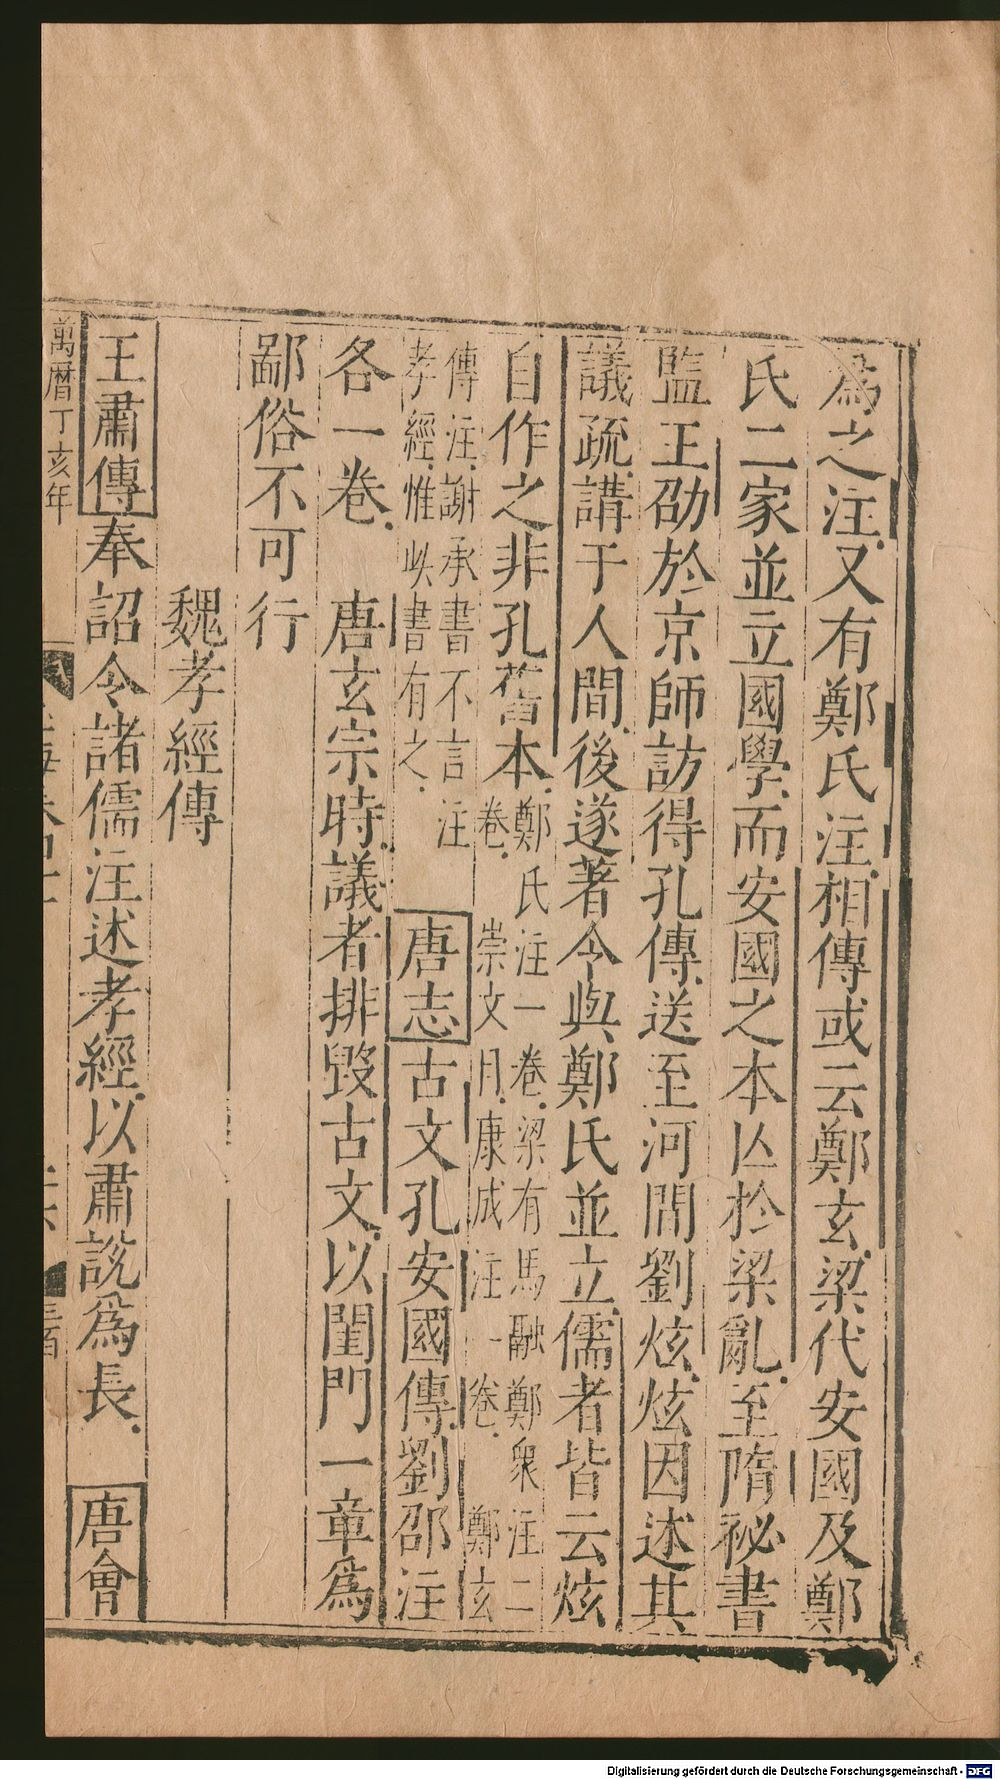 為之注又有鄭氏注相傳或云鄭玄梁代安國及鄭
氏二家並立國學而安國之本亾於梁亂至隋祕書
監王劭於京師訪得孔傳送至河間劉炫炫因述其
議疏講于人間後遂著令與鄭氏並立儒者皆云炫
自作之非孔舊本
鄭氏注一卷梁有馬融鄭衆注二
卷崇文目康成注一卷鄭玄
傳注謝承書不言注
孝經惟此書有之
唐志古文孔安國傳劉邵注
各一卷唐玄宗時議者排毀古文以閨門一章為
鄙俗不可行
魏孝經傳
王肅傳奉詔令諸儒注述孝經以肅說為長唐會
萬曆丁亥年
Digitalisierung gefördert durch die Deutsche Forschungsgemeinschaft - DFG